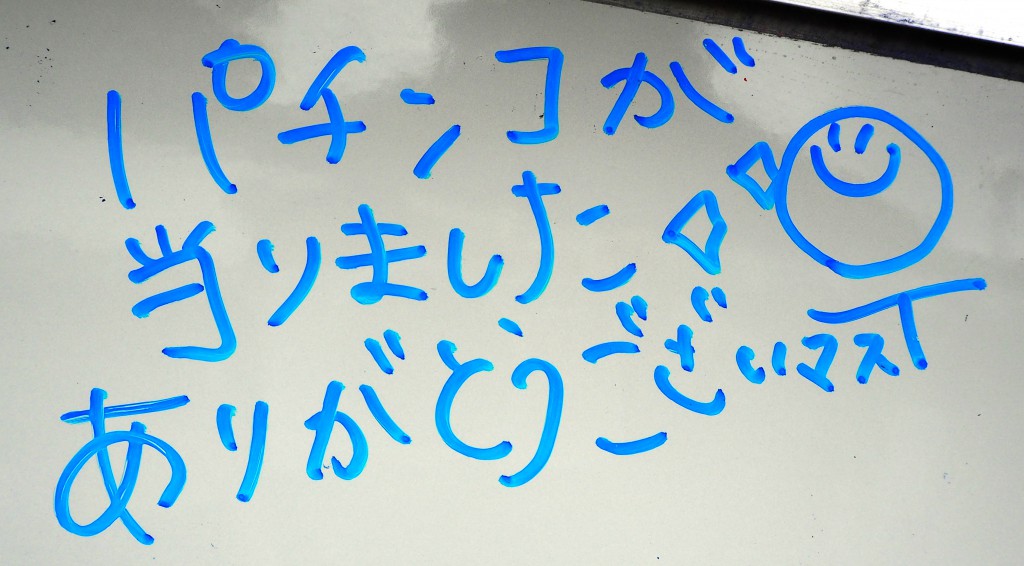 パチンコが
当りました
ありがとうございマス